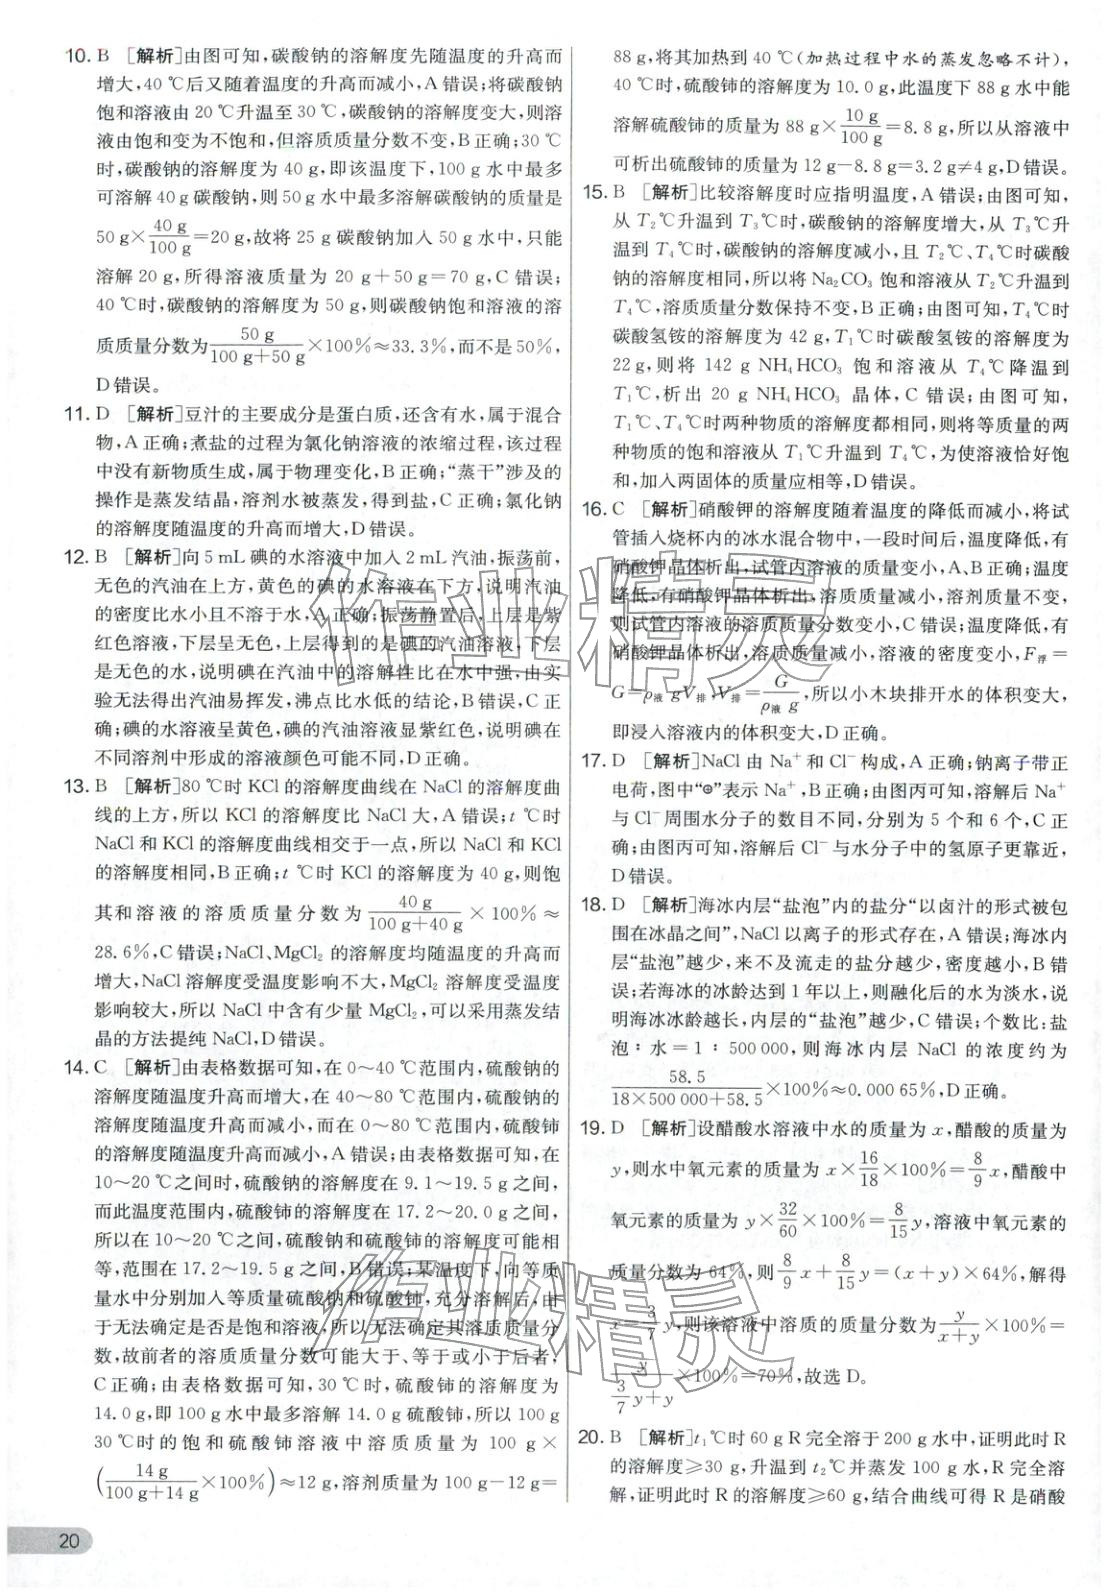 10. B [解析]由图可知,碳酸钠的溶解度先随温度的升高而
增大,40 ℃后又随着温度的升高而减小,A错误;将碳酸钠
饱和溶液由 20 ℃升温至 30 ℃,碳酸钠的溶解度变大,则溶
液由饱和变为不饱和,但溶质质量分数不变,B正确;30 ℃
时,碳酸钠的溶解度为 40 g,即该温度下,100 g 水中最多
可溶解 40 g 碳酸钠,则 50 g 水中最多溶解碳酸钠的质量是
50 g×40 g/100 g=20 g,故将 25 g 碳酸钠加入 50 g 水中,只能
溶解 20 g,所得溶液质量为 20 g+50 g=70 g,C错误;
40 ℃时,碳酸钠的溶解度为 50 g,则碳酸钠饱和溶液的溶
质质量分数为 50 g/(100 g+50 g)×100%≈33.3%,而不是50%,
D错误。
11. D [解析]豆汁的主要成分是蛋白质,还含有水,属于混合
物,A正确;煮盐的过程为氯化钠溶液的浓缩过程,该过程
中没有新物质生成,属于物理变化,B正确;“蒸干”涉及的
操作是蒸发结晶,溶剂水被蒸发,得到盐,C正确;氯化钠
的溶解度随温度的升高而增大,D错误。
12. B [解析]向 5 mL 碘的水溶液中加入 2 mL 汽油,振荡前,
无色的汽油在上方,黄色的碘的水溶液在下方,说明汽油
的密度比水小且不溶于水,A正确;振荡静置后,上层是紫
红色溶液,下层呈无色,上层得到的是碘的汽油溶液,下层
是无色的水,说明碘在汽油中的溶解性比在水中强,由实
验无法得出汽油易挥发,沸点比水低的结论,B错误,C正
确;碘的水溶液呈黄色,碘的汽油溶液显紫红色,说明碘在
不同溶剂中形成的溶液颜色可能不同,D正确。
13. B [解析]80 ℃时 KCl 的溶解度曲线在 NaCl 的溶解度曲
线的上方,所以 KCl 的溶解度比 NaCl 大,A错误;t ℃时
NaCl 和 KCl 的溶解度曲线相交于一点,所以 NaCl 和 KCl
的溶解度相同,B正确;t ℃时 KCl 的溶解度为 40 g,则饱
其和溶液的溶质质量分数为 40 g/(100 g+40 g)×100%≈
28.6%,C错误;NaCl、MgCl₂ 的溶解度均随温度的升高而
增大,NaCl 溶解度受温度影响不大,MgCl₂ 溶解度受温度
影响较大,所以 NaCl 中含有少量 MgCl₂,可以采用蒸发结
晶的方法提纯 NaCl,D错误。
14. C [解析]由表格数据可知,在 0～40 ℃范围内,硫酸钠的
溶解度随温度升高而增大,在 40～80 ℃范围内,硫酸钠的
溶解度随温度升高而减小,而在 0～80 ℃范围内,硫酸铈
的溶解度随温度升高而减小,A错误;由表格数据可知,在
10～20 ℃之间时,硫酸钠的溶解度在 9.1～19.5 g 之间,
而此温度范围内,硫酸铈的溶解度在 17.2～20.0 g 之间,
所以在 10～20 ℃,硫酸钠和硫酸铈的溶解度可能相
等,范围在 17.2～19.5 g 之间,B错误;某温度下,向等质
量水中分别加入等质量硫酸钠和硫酸铈,充分溶解后,由
于无法确定是否是饱和溶液,所以无法确定其溶质质量分
数,故前者的溶质质量分数可能大于、等于或小于后者,
C正确;由表格数据可知,30 ℃时,硫酸铈的溶解度为
14.0 g,即 100 g 水中最多溶解 14.0 g 硫酸铈,所以 100 g
30 ℃时的饱和硫酸铈溶液中溶质质量为 100 g×
(14 g/(100 g+14 g)×100%)≈12 g,溶剂质量为 100 g-12 g=
88 g,将其加热到 40 ℃(加热过程中水的蒸发忽略不计),
40 ℃时,硫酸铈的溶解度为 10.0 g,此温度下 88 g 水中能
溶解硫酸铈的质量为 88 g×10 g/100 g=8.8 g,所以从溶液中
可析出硫酸铈的质量为 12 g-8.8 g=3.2 g≠4 g,D错误。
15. B [解析]比较溶解度时应指明温度,A错误;由图可知,
从 T₂℃升温到 T₃℃时,碳酸钠的溶解度增大,从 T₃℃升
温到 T₄℃时,碳酸钠的溶解度减小,且 T₂℃、T₄℃时碳酸
钠的溶解度相同,所以将 Na₂CO₃ 饱和溶液从 T₂℃升温到
T₄℃,溶质质量分数保持不变,B正确;由图可知,T₄℃时
碳酸氢铵的溶解度为 42 g,T₁℃时碳酸氢铵的溶解度为
22 g,则将 142 g NH₄HCO₃ 饱和溶液从 T₄℃降温到
T₁℃,析出 20 g NH₄HCO₃ 晶体,C错误;由图可知,
T₁℃、T₄℃时两种物质的溶解度都相同,则将等质量的两
种物质的饱和溶液从 T₁℃升温到 T₄℃,为使溶液恰好饱
和,加入两固体的质量应相等,D错误。
16. C [解析]硝酸钾的溶解度随着温度的降低而减小,将试
管插入烧杯内的冰水混合物中,一段时间后,温度降低,有
硝酸钾晶体析出,试管内溶液的质量变小,A、B正确;温度
降低,有硝酸钾晶体析出,溶质质量减小,溶剂质量不变,
则试管内溶液的溶质质量分数变小,C错误;温度降低,有
硝酸钾晶体析出,溶质质量减小,溶液的密度变小,F浮=
G=ρ液gV排,V排=G/(ρ液g),所以小木块排开水的体积变大,
即浸入溶液内的体积变大,D正确。
17. D [解析]NaCl 由 Na⁺ 和 Cl⁻ 构成,A正确;钠离子带正
电荷,图中“⊕”表示 Na⁺,B正确;由图丙可知,溶解后 Na⁺
与 Cl⁻ 周围水分子的数目不同,分别为 5 个和 6 个,C正
确;由图丙可知,溶解后 Cl⁻ 与水分子中的氢原子更靠近,
D错误。
18. D [解析]海冰内层“盐泡”内的盐分“以卤汁的形式被包
围在冰晶之间”,NaCl 以离子的形式存在,A错误;海冰内
层“盐泡”越少,来不及流走的盐分越少,密度越小,B错
误;若海冰的冰龄达到 1 年以上,则融化后的水为淡水,说
明海冰冰龄越长,内层的“盐泡”越少,C错误;个数比:盐
泡∶水=1∶500 000,则海冰内层 NaCl 的浓度约为
58.5/(18×500 000+58.5)×100%≈0.000 65%,D正确。
19. D [解析]设醋酸水溶液中水的质量为 x,醋酸的质量为
y,则水中氧元素的质量为 x×16/18×100%=8/9x,醋酸中
氧元素的质量为 y×32/60×100%=8/15y,溶液中氧元素的
质量分数为64%,则 8/9x+8/15y=(x+y)×64%,解得
x=3/7y,则该溶液中溶质的质量分数为 y/(x+y)×100%=
y/(3/7y+y)×100%=70%,故选 D。
20. B [解析]t₁℃时 60 g R 完全溶于 200 g 水中,证明此时 R
的溶解度≥30 g,升温到 t₂℃并蒸发 100 g 水,R 完全溶
解,证明此时 R 的溶解度≥60 g,结合曲线可得 R 是硝酸
20
作业精灵
作业精灵